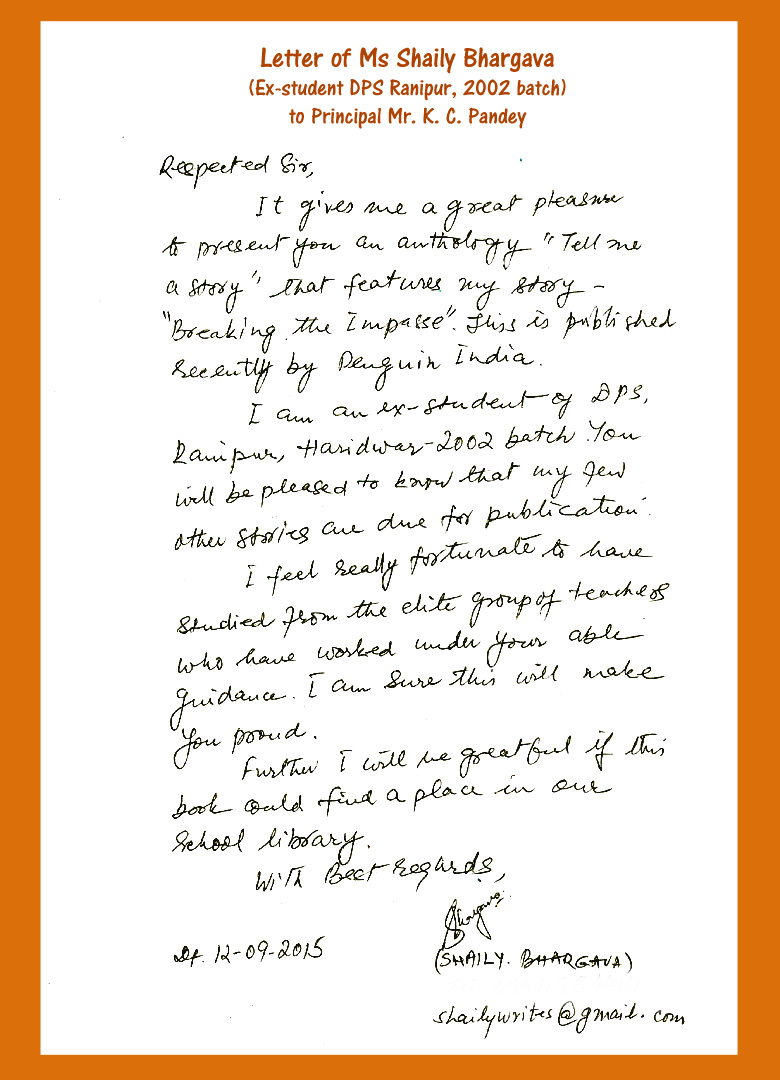 Letter of Ms Shaily Bhargava
(Ex-student DPS Ranipur, 2002 batch)
to Principal Mr. K. C. Pandey
Respected Sir,
It gives me a great pleasure
to present you an anthology "Tell me
a story" that features my story -
"Breaking the Impasse". This is published
recently by Penguin India.
I am an ex-student of DPS,
Ranipur, Haridwar-2002 batch. You
will be pleased to know that my few
other stories are due for publication.
I feel really fortunate to have
studied from the elite group of teachers
who have worked under your able
guidance. I am sure this will make
you proud.
Further I will be greatful if this
book could find a place in our
school library.
With Best regards,
Bhargava
Dt. 12-09-2015
(SHAILY. BHARGAVA)
shailywrites@gmail.com